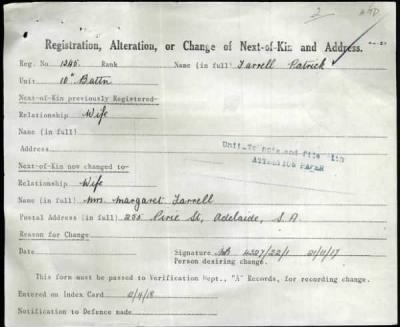 2
Registration, Alteration, or Change of Next-of-Kin and Address.
Reg. No. 1345. Rank Name (in full) Farrell Patrick
Unit 10" Battn
Next-of-Kin previously Registered-
Relationship Wife
Name (in full)
Address
Unit to note and file with
ATTESTION PAPER
Next-of-Kin now changed to-
Relationship Wife
Name (in full) Mrs. Margaret Farrell
Postal Address (in full) 255 Pirie St, Adelaide, S.A
Reason for Change
Date Signature 4327/22/1 21/11/17
Person desiring change.
This form must be passed to Verification Dept., "A" Records, for recording change.
Entered on Index Card 12/4/18
Notification to Defence made